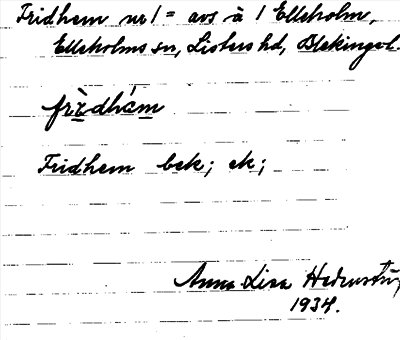 Fridhem nr 1 = avs å 1 Elleholm,
Elleholms sn, Listers hd, Blekinge l.
frèdhám
Fridhem bek; ek;
Anna Lisa
1934.